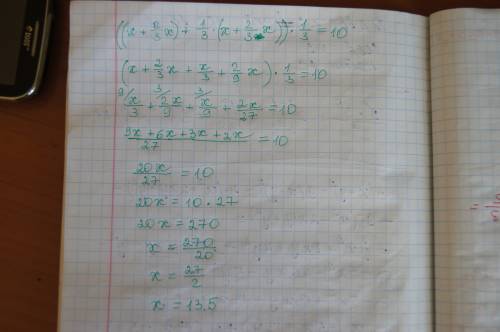 ((x + 2/3 x) + 1/3 · (x + 2/3 x)) · 1/3 = 10
(x + 2/3 x + x/3 + 2/9 x) · 1/3 = 10
9/ x/3 + 3/ 2x/9 + 3/ x/9 + 2x/27 = 10
9x + 6x + 3x + 2x / 27 = 10
20x/27 = 10
20x = 10 · 27
20x = 270
x = 270/20
x = 27/2
x = 13.5